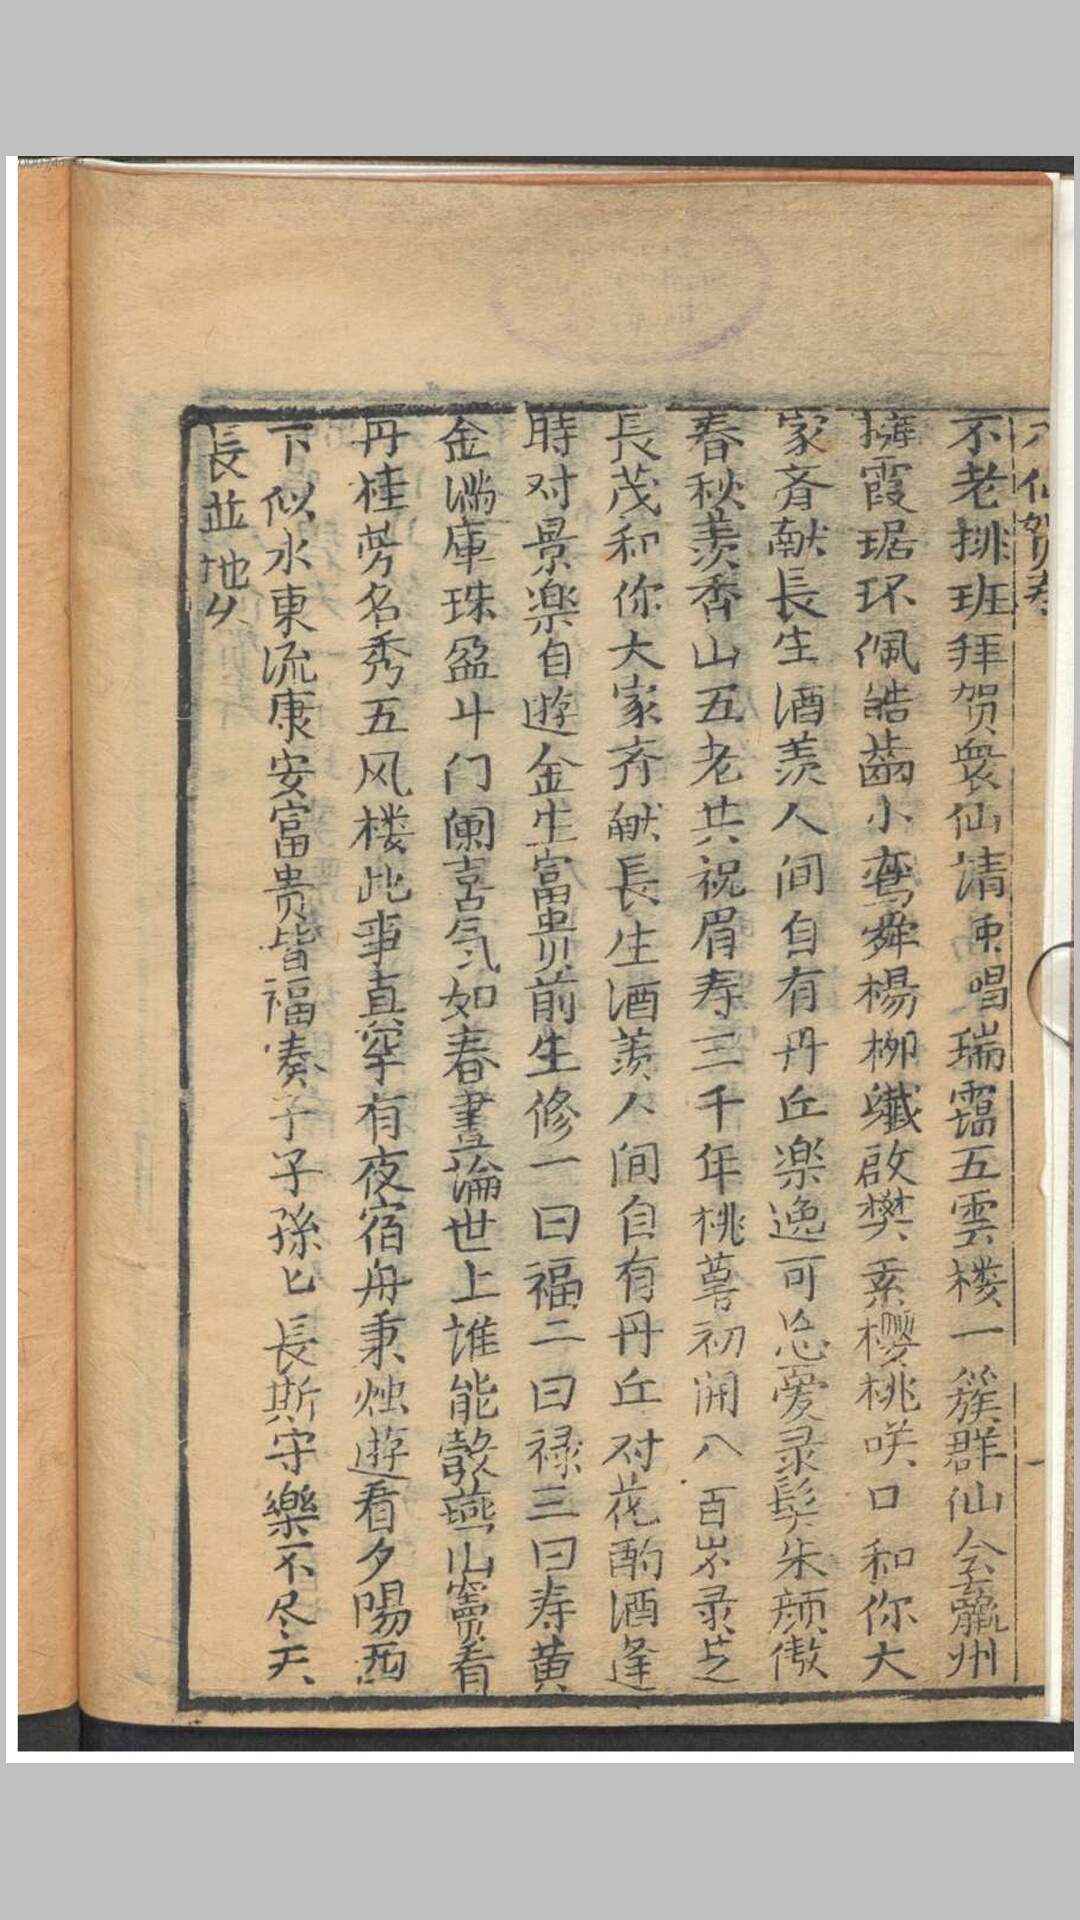 八仙贺寿
不老排班拜贺衆仙请東唱瑞靄五雲楼一簇群仙会瀛州
擁霞琚环佩皓齒小鸾舜楊柳纎啟樊素櫻桃咲口和你大
家斉献長生酒羨人间自有丹丘楽逸可忘憂录髩朱颜傲
春秋羨香山五老共祝眉寿三千年桃萼初開八百岁录芝
長茂和你大家齐献長生酒羨人间自有丹丘对花酌酒逢
時对景楽自遊金生富貴前生修一曰福二曰禄三曰寿黄
金满庫珠盈斗门阑喜气如春晝論世上誰能彀燕山竇看
丹桂芳名秀五凤楼此事真罕有夜宿舟秉烛遊看夕陽西
下似水東流康安富贵皆福凑子子孫匕長斯守樂不尽天
長並地久